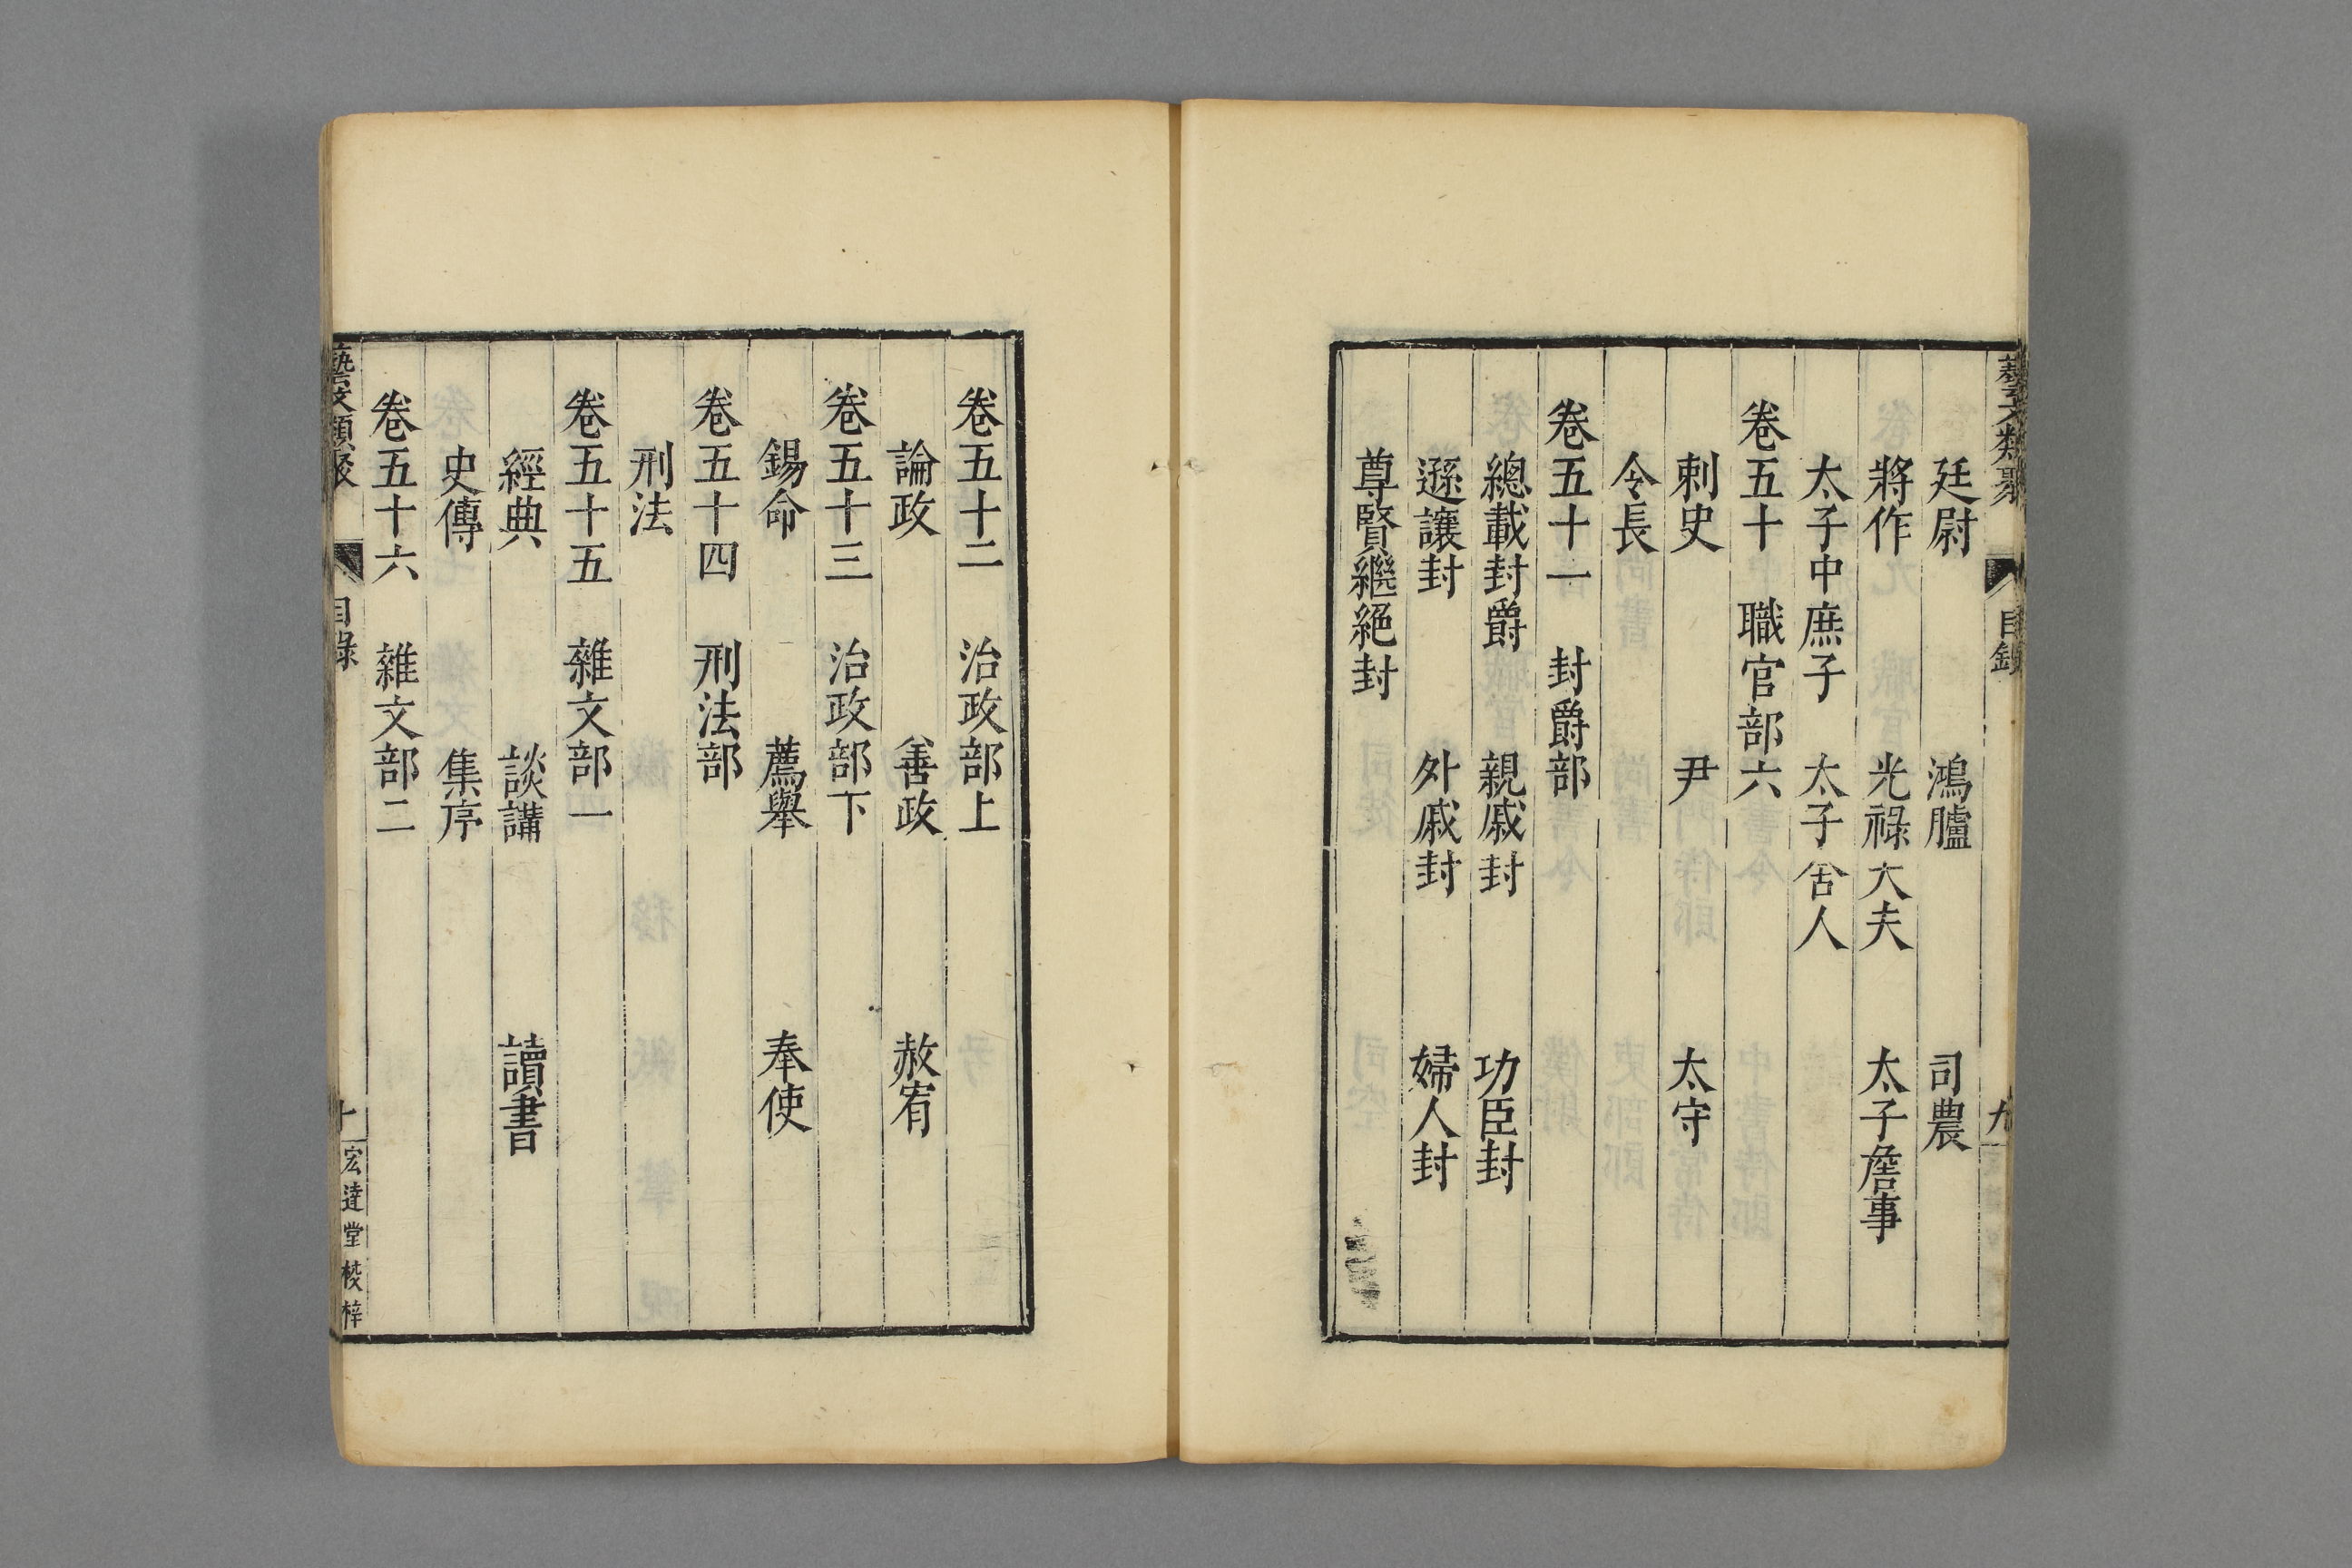 藝文類聚 目錄 九
廷尉 鴻臚 司農
將作 光祿大夫 太子詹事
太子中庶子 太子舍人
卷五十 職官部六
刺史 尹 太守
令長
卷五十一 封爵部
總載封爵 親戚封 功臣封
遜讓封 外戚封 婦人封
尊賢繼絕封
卷五十二 治政部上
論政 善政 赦宥
卷五十三 治政部下
錫命 薦舉 奉使
卷五十四 刑法部
刑法
卷五十五 雜文部一
經典 談講 讀書
史傳 集序
卷五十六 雜文部二
藝文類聚 目錄 十 宏達堂校梓